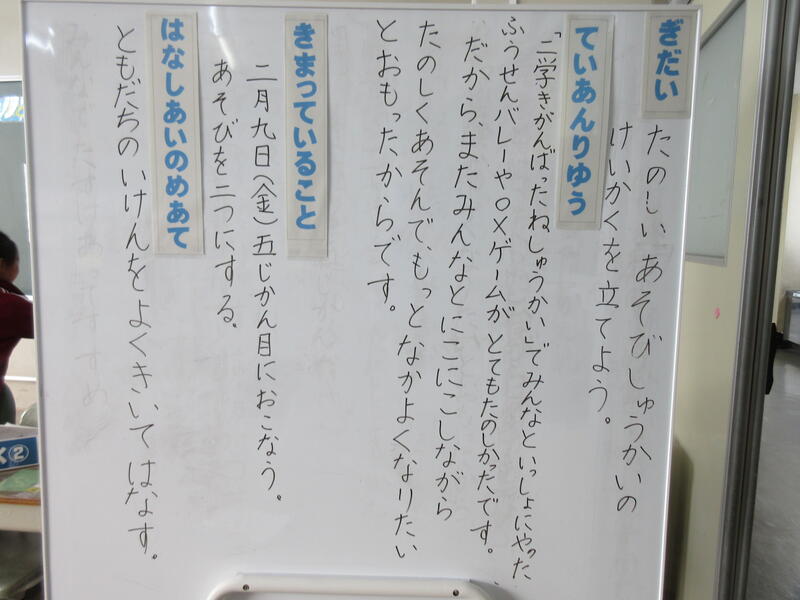 ぎだい
たのしいあそびしゅうかいの
けいかくを立てよう。
ていあんりゆう
「二学きがんばったねしゅうかい」でみんなといっしょにやった
ふうせんバレーや○×ゲームがとてもたのしかったです。
だから、またみんなとにこにこしながら
たのしくあそんで、もっとなかよくなりたい
とおもったからです。
きまっていること
二月九日(金)五じかん目におこなう。
あそびを二つにする。
はなしあいのめあて
ともだちのいけんをよくきいてはなす。
②